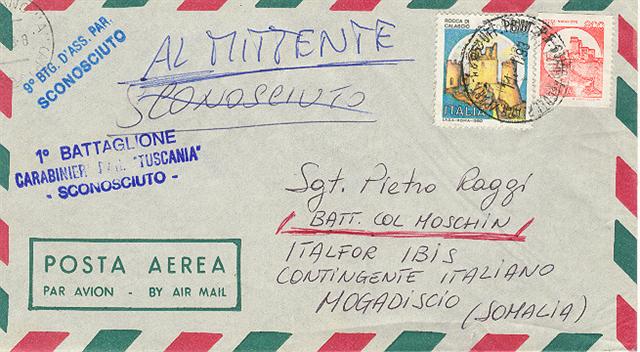 9° BTG. D'ASS. PAR.
SCONOSCIUTO
AL MITTENTE
SCONOSCIUTO
1° BATTAGLIONE
CARABINIERI PAR. "TUSCANIA"
- SCONOSCIUTO -
ROCCA DI
CALASCIO
ITALIA
Sgt. Pietro Raggi
BATT. COL MOSCHIN
ITALFOR IBIS
CONTINGENTE ITALIANO
MOGADISCIO (SOMALIA)
POSTA AEREA
PAR AVION - BY AIR MAIL